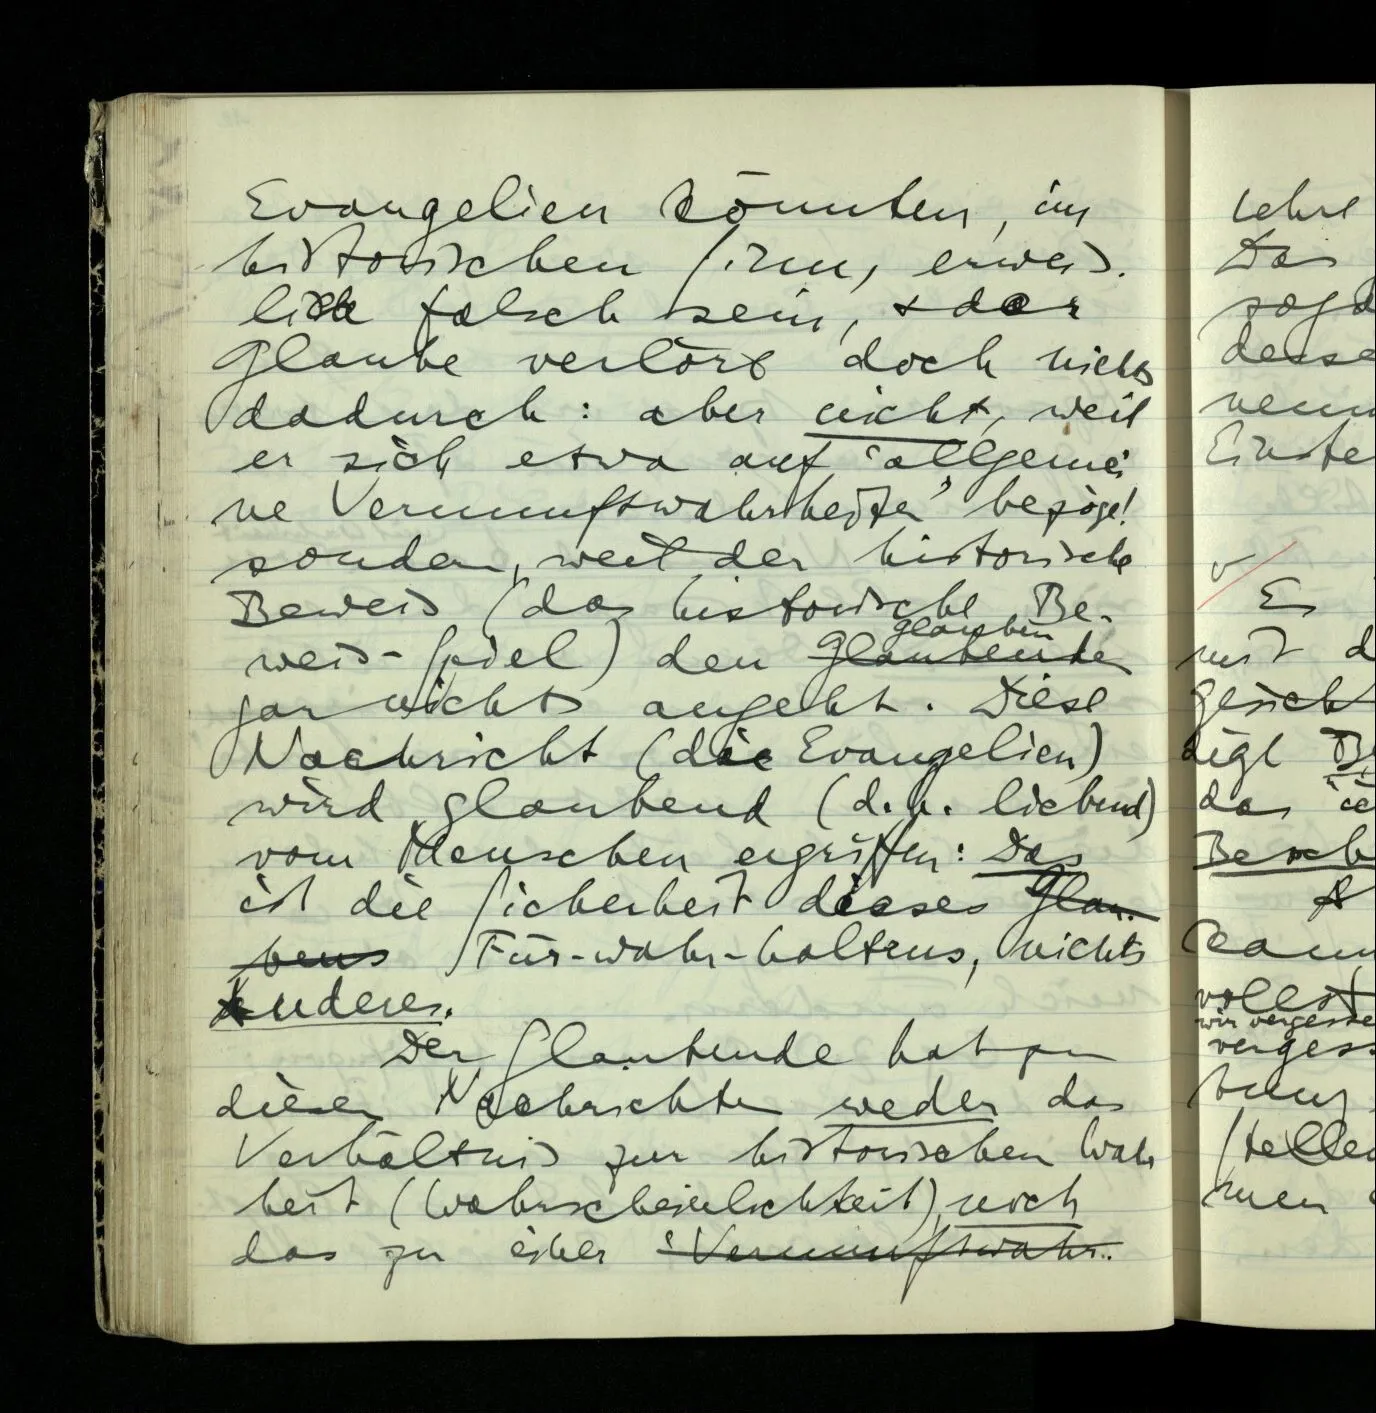 Evangelien könnten, im
historischen Sinn, erweis-
lich falsch sein, & der
Glaube verlöre doch nichts
dadurch: aber nicht, weil
er sich etwa auf 'allgemei
ne Vernunftwahrheiten' bezöge!
sondern, weil der historische
Beweis (das historische Be-
weis-Spiel) den Glaubende glauben
gar nichts angeht. Diese
Nachricht (die Evangelien)
wird glaubend (d.h. liebend)
vom Menschen ergriffen: Das
ist die Sicherheit dieses Glau-
bens Für-wahr-haltens, nichts
Anderes.
Der Glaubende hat zu
diesen Nachrichten weder das
Verhältnis zur historischen Wahr
heit (Wahrscheinlichkeit), noch
das zu einer 'Vernunftwahr-
Lehre
Das
sogd
desse
venn
Einste
v
Es
mit d
Gesich
digt Be
das
Besch
kann
vollst
wir vergesse
verges
stellen
men